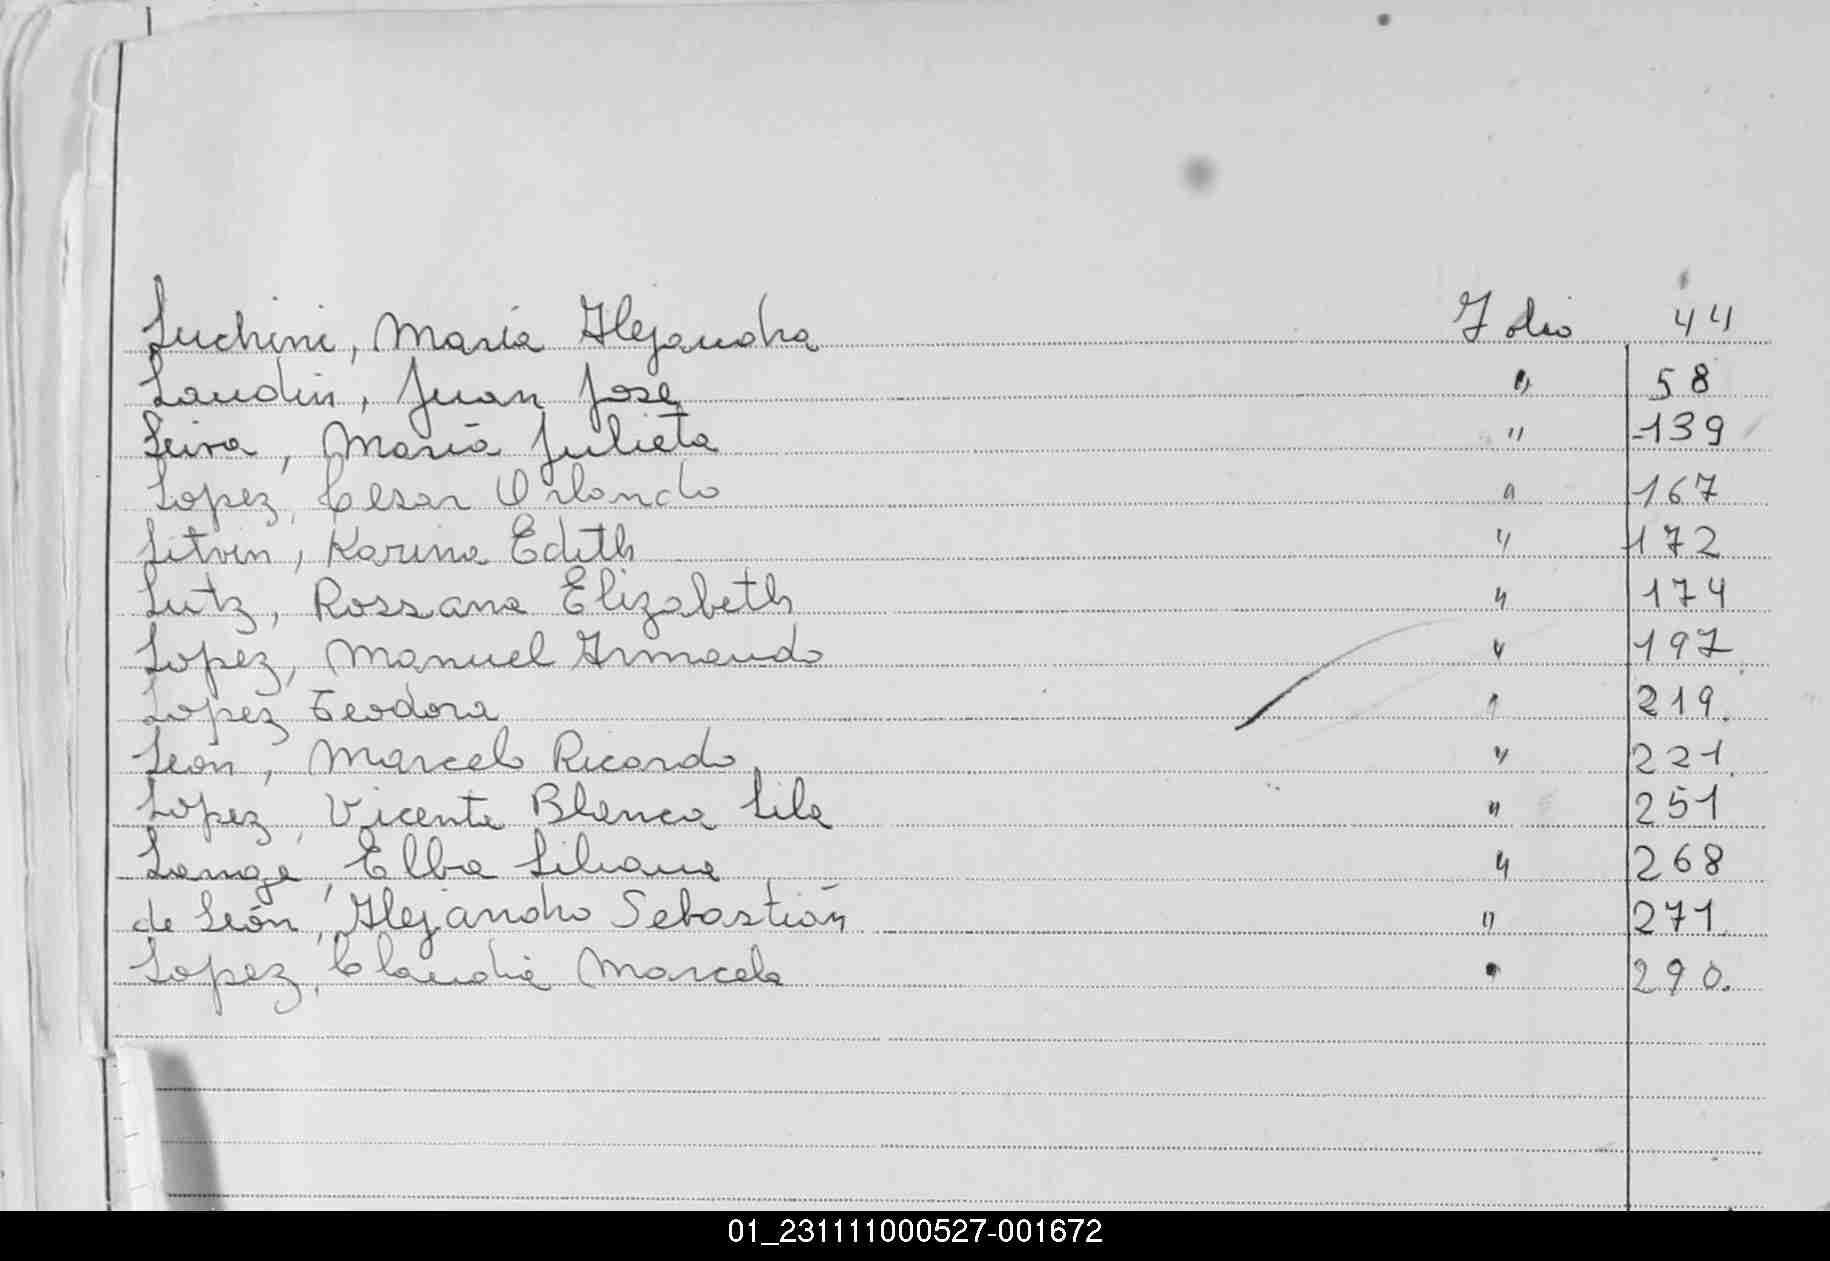 Luchini, María Alejandra Folio 44
Landin, Juan José " 58
Leiva, María Julieta " 139
Lopez, Cesar Orlando " 167
Litvin, Karina Edith " 172
Lutz, Rossana Elizabeth " 174
Lopez, Manuel Armando " 197
Lopez Teodora " 219.
León, Marcelo Ricardo " 221.
Lopez, Vicente Blanca Lila " 251
Lange, Elba Liliana " 268
de León, Alejandro Sebastián " 271.
Lopez, Claudia Marcela " 290.
01_231111000527-001672